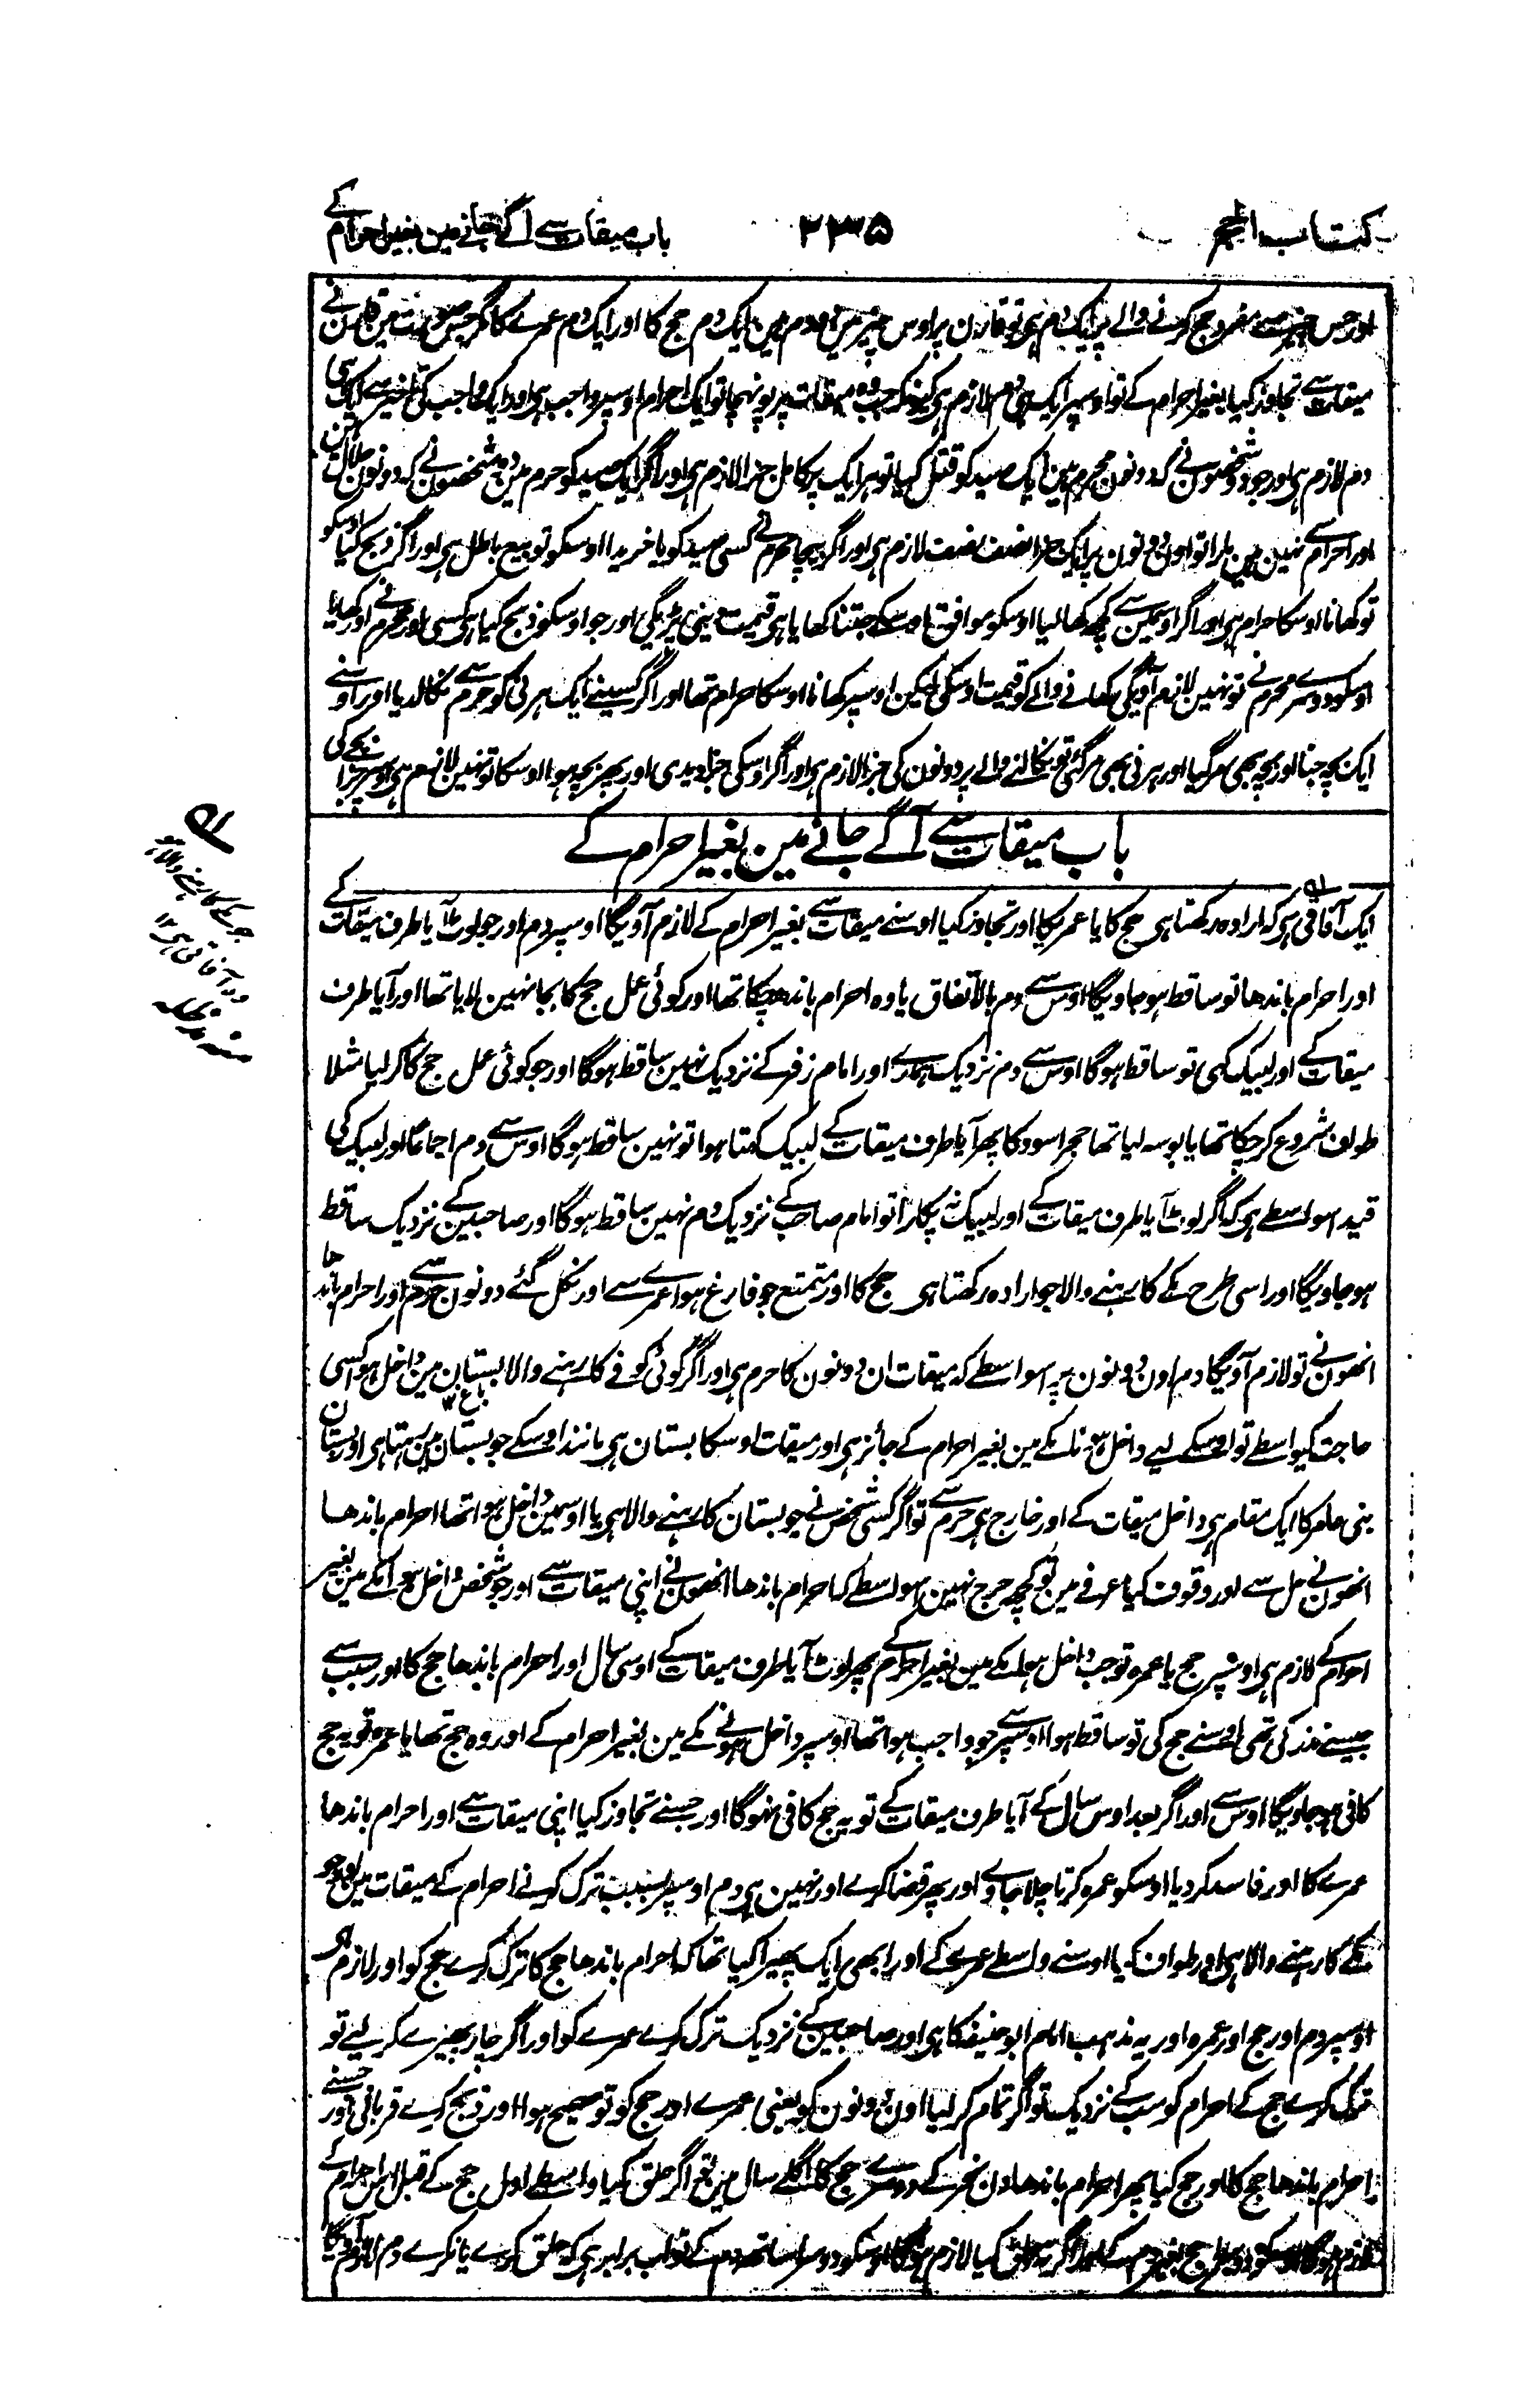 کتاب الحج ۲۳۵ باب میقات سے آگے جانے مین بغیر احرام کے
اور جس چیز سے مفرد حج کرنے والے پر ایک دم ہی تو قارن پر اوس چیز مین دو دم ہین ایک دم حج کا اور ایک دم عمرے کا مگر جس صورت مین قارن نے
میقات سے تجاوز کیا بغیر احرام کے تو اوسپر ایک ہی دم لازم ہی کیونکہ جب وہ میقات پر پونہچا تو ایک احرام اوسپر واجب ہی اور ایک واجب کی تاخیر سے ایک ہی
دم لازم ہی اور جو دو شخصون نے کہ دونون محرم ہین ایک صید کو قتل کیا تو ہر ایک پر کامل جزا لازم ہی اور اگر ایک صید کو حرم مین دو شخصون نے کہ دونون حلال ہین
اور احرام سے نہین ہین مارا تو اون دونون پر ایک جزا نصف نصف لازم ہی اور اگر بیچا محرم نے کسی صید کو یا خریدا اوسکو تو بیع باطل ہی اور اگر ذبح کیا اوسکو
تو کھانا اوسکا حرام ہی اور اگر اوسمین سے کچھ کھا لیا اوسکو موافق اوسکے جتنا کھایا ہی قیمت دینی پڑیگی اور جو اوسکو ذبح کیا ہی کسی اور محرم نے اور کھایا
اوسکو دوسرے محرم نے تو نہین لازم آویگی کھانے والے کو قیمت اوسکی لیکن اوسپر کھانا اوسکا حرام تھا اور اگر کسینے ایک ہرنی کو حرم سے نکالدیا اور اوسنے
ایک بچہ جنا اور بچہ بھی مر گیا اور ہرنی بھی مر گئی تو نکالنے والے پر دونون کی جزا لازم ہی اور اگر اوسکی جزا دیدی اور پھر بچہ ہوا اوسکا تو نہین لازم ہی اوسپر جزا بچے کی
باب میقات سے آگے جانے مین بغیر احرام کے
ایک آفاقی ہی کہ ارادہ رکھتا ہی حج کا یا عمریکا اور تجاوز کیا اوسنے میقات سے بغیر احرام کے لازم آویگا اوسپر دم اور جو لوٹ آیا طرف میقات کے
اور احرام باندھا تو ساقط ہو جاویگا اوس سے دم بالاتفاق یا وہ احرام باندھ چکا تھا اور کوئی عمل حج کا بجا نہین لایا تھا اور آیا طرف
میقات کے اور لبیک کہی تو ساقط ہوگا اوس سے دم نزدیک ہمارے اور امام زفر کے نزدیک نہین ساقط ہوگا اور جو کوئی عمل حج کا کر لیا مثلا
طواف شروع کر چکا تھا یا بوسہ لیا تھا حجر اسود کا پھر آیا طرف میقات کے لبیک کہتا ہوا تو نہین ساقط ہوگا اوس سے دم اجماعًا اور لبیک کی
قید اسواسطے ہی کہ اگر لوٹ آیا طرف میقات کے اور لبیک نہ پکارا تو امام صاحب کے نزدیک دم نہین ساقط ہوگا اور صاحبین کے نزدیک ساقط
ہو جاویگا اور اسی طرح مکے کا رہنے والا جو ارادہ رکھتا ہی حج کا اور متمتع جو فارغ ہوا عمرے سے اور نکل گئے دونون حرم سے اور احرام باندھا
انھون نے تو لازم آویگا دم اون دونون پر اسواسطے کہ میقات ان دونون کا حرم ہی اور اگر کوئی کوفے کا رہنے والا بستان مین داخل ہو کسی
باغ ۱۲
حاجت کیواسطے تو اوسکے لیے داخل ہونا مکے مین بغیر احرام کے جائز ہی اور میقات اوسکا بستان ہی مانند اوسکے جو بستان مین رہتا ہی اور بستان
بنی عامر کا ایک مقام ہی داخل میقات کے اور خارج ہی حرم سے تو اگر کسی شخص نے جو بستان کا رہنے والا ہی یا اوسمین داخل ہوا تھا احرام باندھا
انھون نے حل سے اور وقوف کیا عرفے مین تو کچھ حرج نہین اسواسطے کہ احرام باندھا انھون نے اپنی میقات سے اور جو شخص داخل ہوا مکے مین بغیر
احرام کے لازم ہی اوسپر حج یا عمرہ تو جب داخل ہوا مکے مین بغیر احرام کے پھر لوٹ آیا طرف میقات کے اوسی سال اور احرام باندھا حج کا اور سبب سے
جیسے نذر کی تھی اوسنے حج کی تو ساقط ہوا اوس سے جو واجب ہوا تھا اوسپر داخل ہونے مکے مین بغیر احرام کے اور وہ حج تھا یا عمرہ تو یہ حج
کافی ہو جاویگا اوس سے اور اگر بعد اوس سال کے آیا طرف میقات کے تو یہ حج کافی نہوگا اور جسنے تجاوز کیا اپنی میقات سے اور احرام باندھا
عمرے کا اور فاسد کر دیا اوسکو عمرہ کرتا چلا جاوے اور پھر قضا کرے اور نہین ہی دم اوسپر بسبب ترک کرنے احرام کے میقات مین اور جو
مکے کا رہنے والا ہی اور طواف کیا اوسنے واسطے عمرے کے اور ابھی ایک پھیرا کیا تھا کہ احرام باندھا حج کا ترک کرے حج کو اور لازم ہی
اوسپر دم اور حج اور عمرہ اور یہ مذہب امام ابو حنیفہ کا ہی اور صاحبین کے نزدیک ترک کرے عمرے کو اور اگر چار پھیرے کر لیے تو
ترک کرے حج کے احرام کو سب کے نزدیک تو اگر تمام کر لیا اون دونون کو یعنی عمرے اور حج کو تو صحیح ہوا اور ذبح کرے قربانی اور جسنے
احرام باندھا حج کا اور حج کیا پھر احرام باندھا دن نحر کے دوسرے حج کا اگلے سال مین تو اگر حلق کیا واسطے اول حج کے قبل اس احرام کے
لازم ہوگا اوسکو دوسرا حج بغیر دم کے اور اگر نہ حلق کیا لازم ہوگا اوسکو دوسرا ساتھ دم کے تو اب برابر ہی کہ حلق کرے یا نکرے دم لازم آویگا